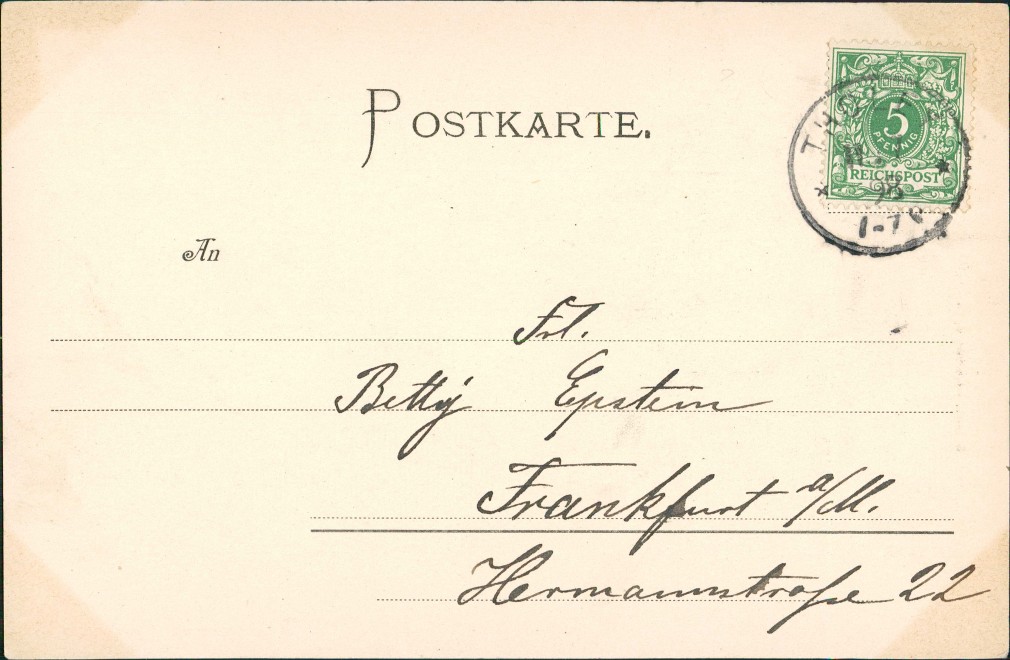 POSTKARTE.
5
PFENNIG
REICHSPOST
98
An
Frl.
Betty Epstein
Frankfurt a/M.
Hermannstraße 22